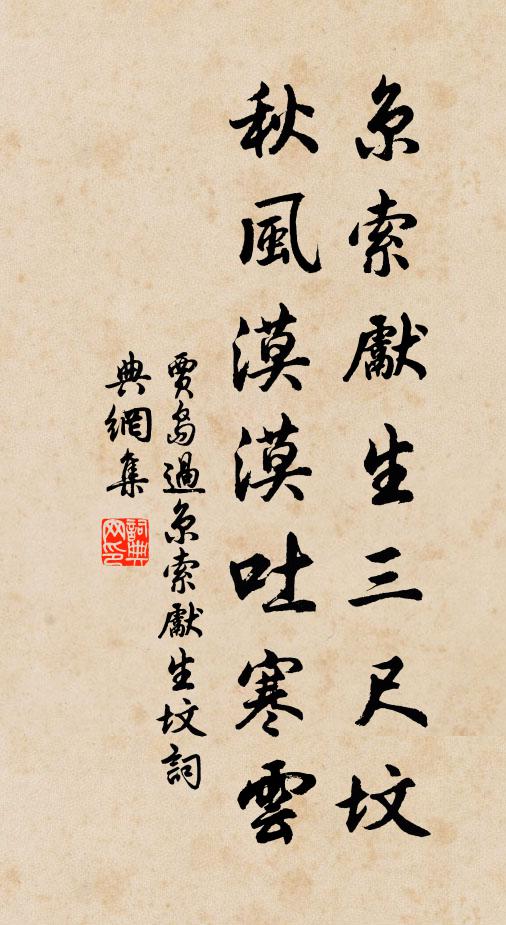 京索先生三尺墳
秋風漠漠吐寒雲
賈島過京索先生墳詞
典網集
詞典
网印